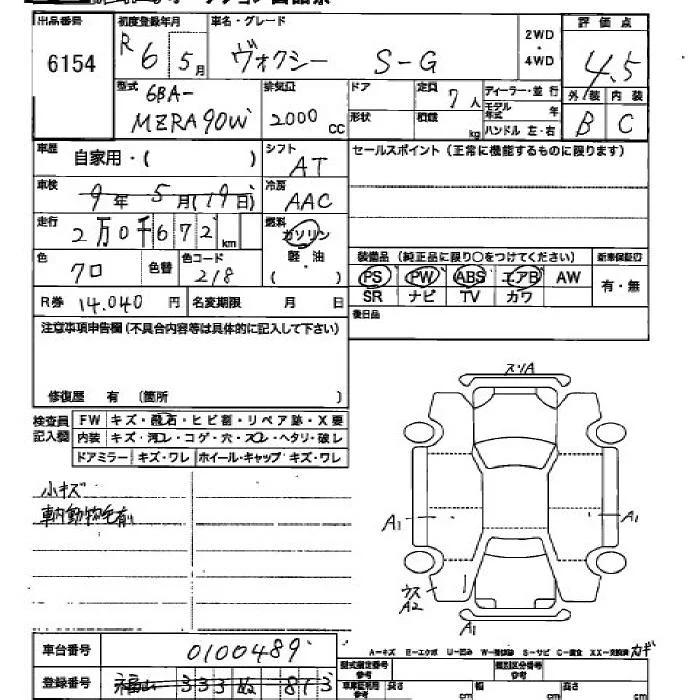 出品番号 初度登録年月 車名・グレード 2WD・4WD 評価点
6154 R6 5月 ヴォクシー S-G 4.5
型式 6BA-MZRA90W 排気量 2000cc ドア 定員 7人 ディーラー・並行 外装 内装
形状 積載 kg モデル年式 年 ハンドル 左・右 B C
車歴 自家用・( ) シフト AT セールスポイント(正常に機能するものに限ります)
車検 9年5月(19日) 冷房 AAC
走行 2万0千672km 燃料 ガソリン
軽・油
( )
色 クロ 色替 色コード 218 装備品(純正品に限り○をつけてください) 新車保証書
PS PW ABS エアB AW 有・無
SR ナビ TV カワ
R券 14.040円 名変期限 月 日 後日品
注意事項申告欄(不具合内容等は具体的に記入して下さい)
修復歴 有 (箇所 )
検査員記入欄 FW キズ・飛石・ヒビ割・リペア跡・X要
内装 キズ・汚レ・コゲ・穴・スレ・ヘタリ・破レ
ドアミラー キズ・ワレ ホイール・キャップ キズ・ワレ
スリA
小キズ
車内動物毛有
A1 A1
ウス
A2
A1
車台番号 0100489
A-キズ E-エクボ U-凹み W-補修跡 S-サビ C-腐食 XX-交換済 カギ
型式指定番号 類別区分番号
参考 参考
登録番号 福山 333 ぬ 813
車庫証明利用参考 長さ cm 幅 cm 高さ cm